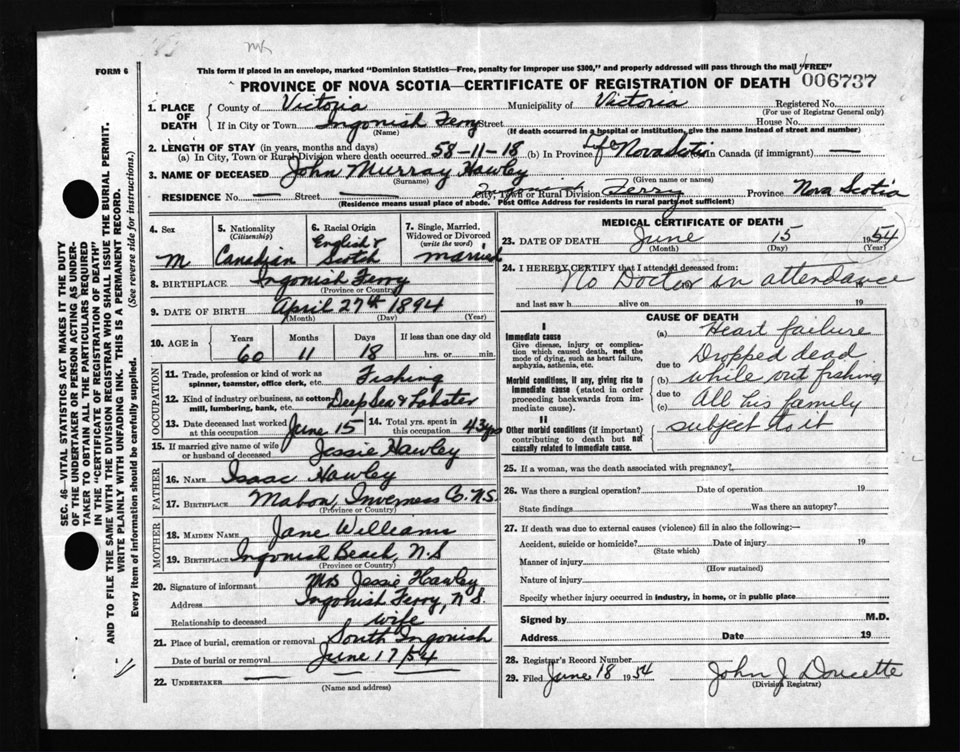 FORM 6
This form if placed in an envelope, marked "Dominion Statistics—Free, penalty for improper use $300," and properly addressed will pass through the mail "FREE"
PROVINCE OF NOVA SCOTIA—CERTIFICATE OF REGISTRATION OF DEATH
006737
1. PLACE OF DEATH
County of Victoria Municipality of Victoria Registered No.
(For use of Registrar General only)
If in City or Town Ingonish Ferry Street House No.
(Name) (If death occurred in a hospital or institution, give the name instead of street and number)
2. LENGTH OF STAY (in years, months and days)
(a) In City, Town or Rural Division where death occurred 58-11-18 (b) In Province Life Nova Scotia in Canada (if immigrant) —
3. NAME OF DECEASED John Murray Hawley
(Surname) (Given name or names)
RESIDENCE No. — Street — City, Town or Rural Division Ferry Province Nova Scotia
(Residence means usual place of abode. Post Office Address for residents in rural parts not sufficient)
4. Sex M
5. Nationality (Citizenship) Canadian
6. Racial Origin English & Scotch
7. Single, Married, Widowed or Divorced (write the word) married
8. BIRTHPLACE Ingonish Ferry
(Province or Country)
9. DATE OF BIRTH April 27th 1894
(Month) (Day) (Year)
10. AGE in Years Months Days If less than one day old
60 11 18 hrs. or min.
OCCUPATION
11. Trade, profession or kind of work as spinner, teamster, office clerk, etc. Fishing
12. Kind of industry or business, as cotton mill, lumbering, bank, etc. Deep Sea & Lobster
13. Date deceased last worked at this occupation June 15
14. Total yrs. spent in this occupation 43 yrs
15. If married give name of wife or husband of deceased Jessie Hawley
FATHER
16. NAME Isaac Hawley
17. BIRTHPLACE Mabou, Inverness Co. N.S.
(Province or Country)
MOTHER
18. MAIDEN NAME Jane Williams
19. BIRTHPLACE Ingonish Beach, N.S
(Province or Country)
20. Signature of informant Mrs Jessie Hawley
Address Ingonish Ferry, N.S.
Relationship to deceased wife
21. Place of burial, cremation or removal South Ingonish
Date of burial or removal June 17/54
22. UNDERTAKER
(Name and address)
MEDICAL CERTIFICATE OF DEATH
23. DATE OF DEATH June 15 1954
(Month) (Day) (Year)
24. I HEREBY CERTIFY that I attended deceased from:
No Doctor in attendance
and last saw h alive on 19
CAUSE OF DEATH
I
Immediate cause
Give disease, injury or complication which caused death, not the mode of dying, such as heart failure, asphyxia, asthenia, etc.
Morbid conditions, if any, giving rise to immediate cause (stated in order proceeding backwards from immediate cause).
II
Other morbid conditions (if important) contributing to death but not causally related to immediate cause.
(a) Heart failure
due to Dropped dead
(b) while out fishing
due to
(c) All his family
subject to it
25. If a woman, was the death associated with pregnancy?
26. Was there a surgical operation? Date of operation 19
State findings Was there an autopsy?
27. If death was due to external causes (violence) fill in also the following:—
Accident, suicide or homicide? Date of injury 19
(State which)
Manner of injury
(How sustained)
Nature of injury
Specify whether injury occurred in industry, in home, or in public place
Signed by M.D.
Address Date 19
28. Registrar's Record Number
29. Filed June 18 1954 John J Doucette
(Division Registrar)
SEC. 46—VITAL STATISTICS ACT MAKES IT THE DUTY
OF THE UNDERTAKER OR PERSON ACTING AS UNDERTAKER TO OBTAIN ALL THE PARTICULARS REQUIRED
IN THE "CERTIFICATE OF REGISTRATION OF DEATH"
AND TO FILE THE SAME WITH THE DIVISION REGISTRAR WHO SHALL ISSUE THE BURIAL PERMIT.
WRITE PLAINLY WITH UNFADING INK. THIS IS A PERMANENT RECORD.
Every item of information should be carefully supplied. (See reverse side for instructions.)